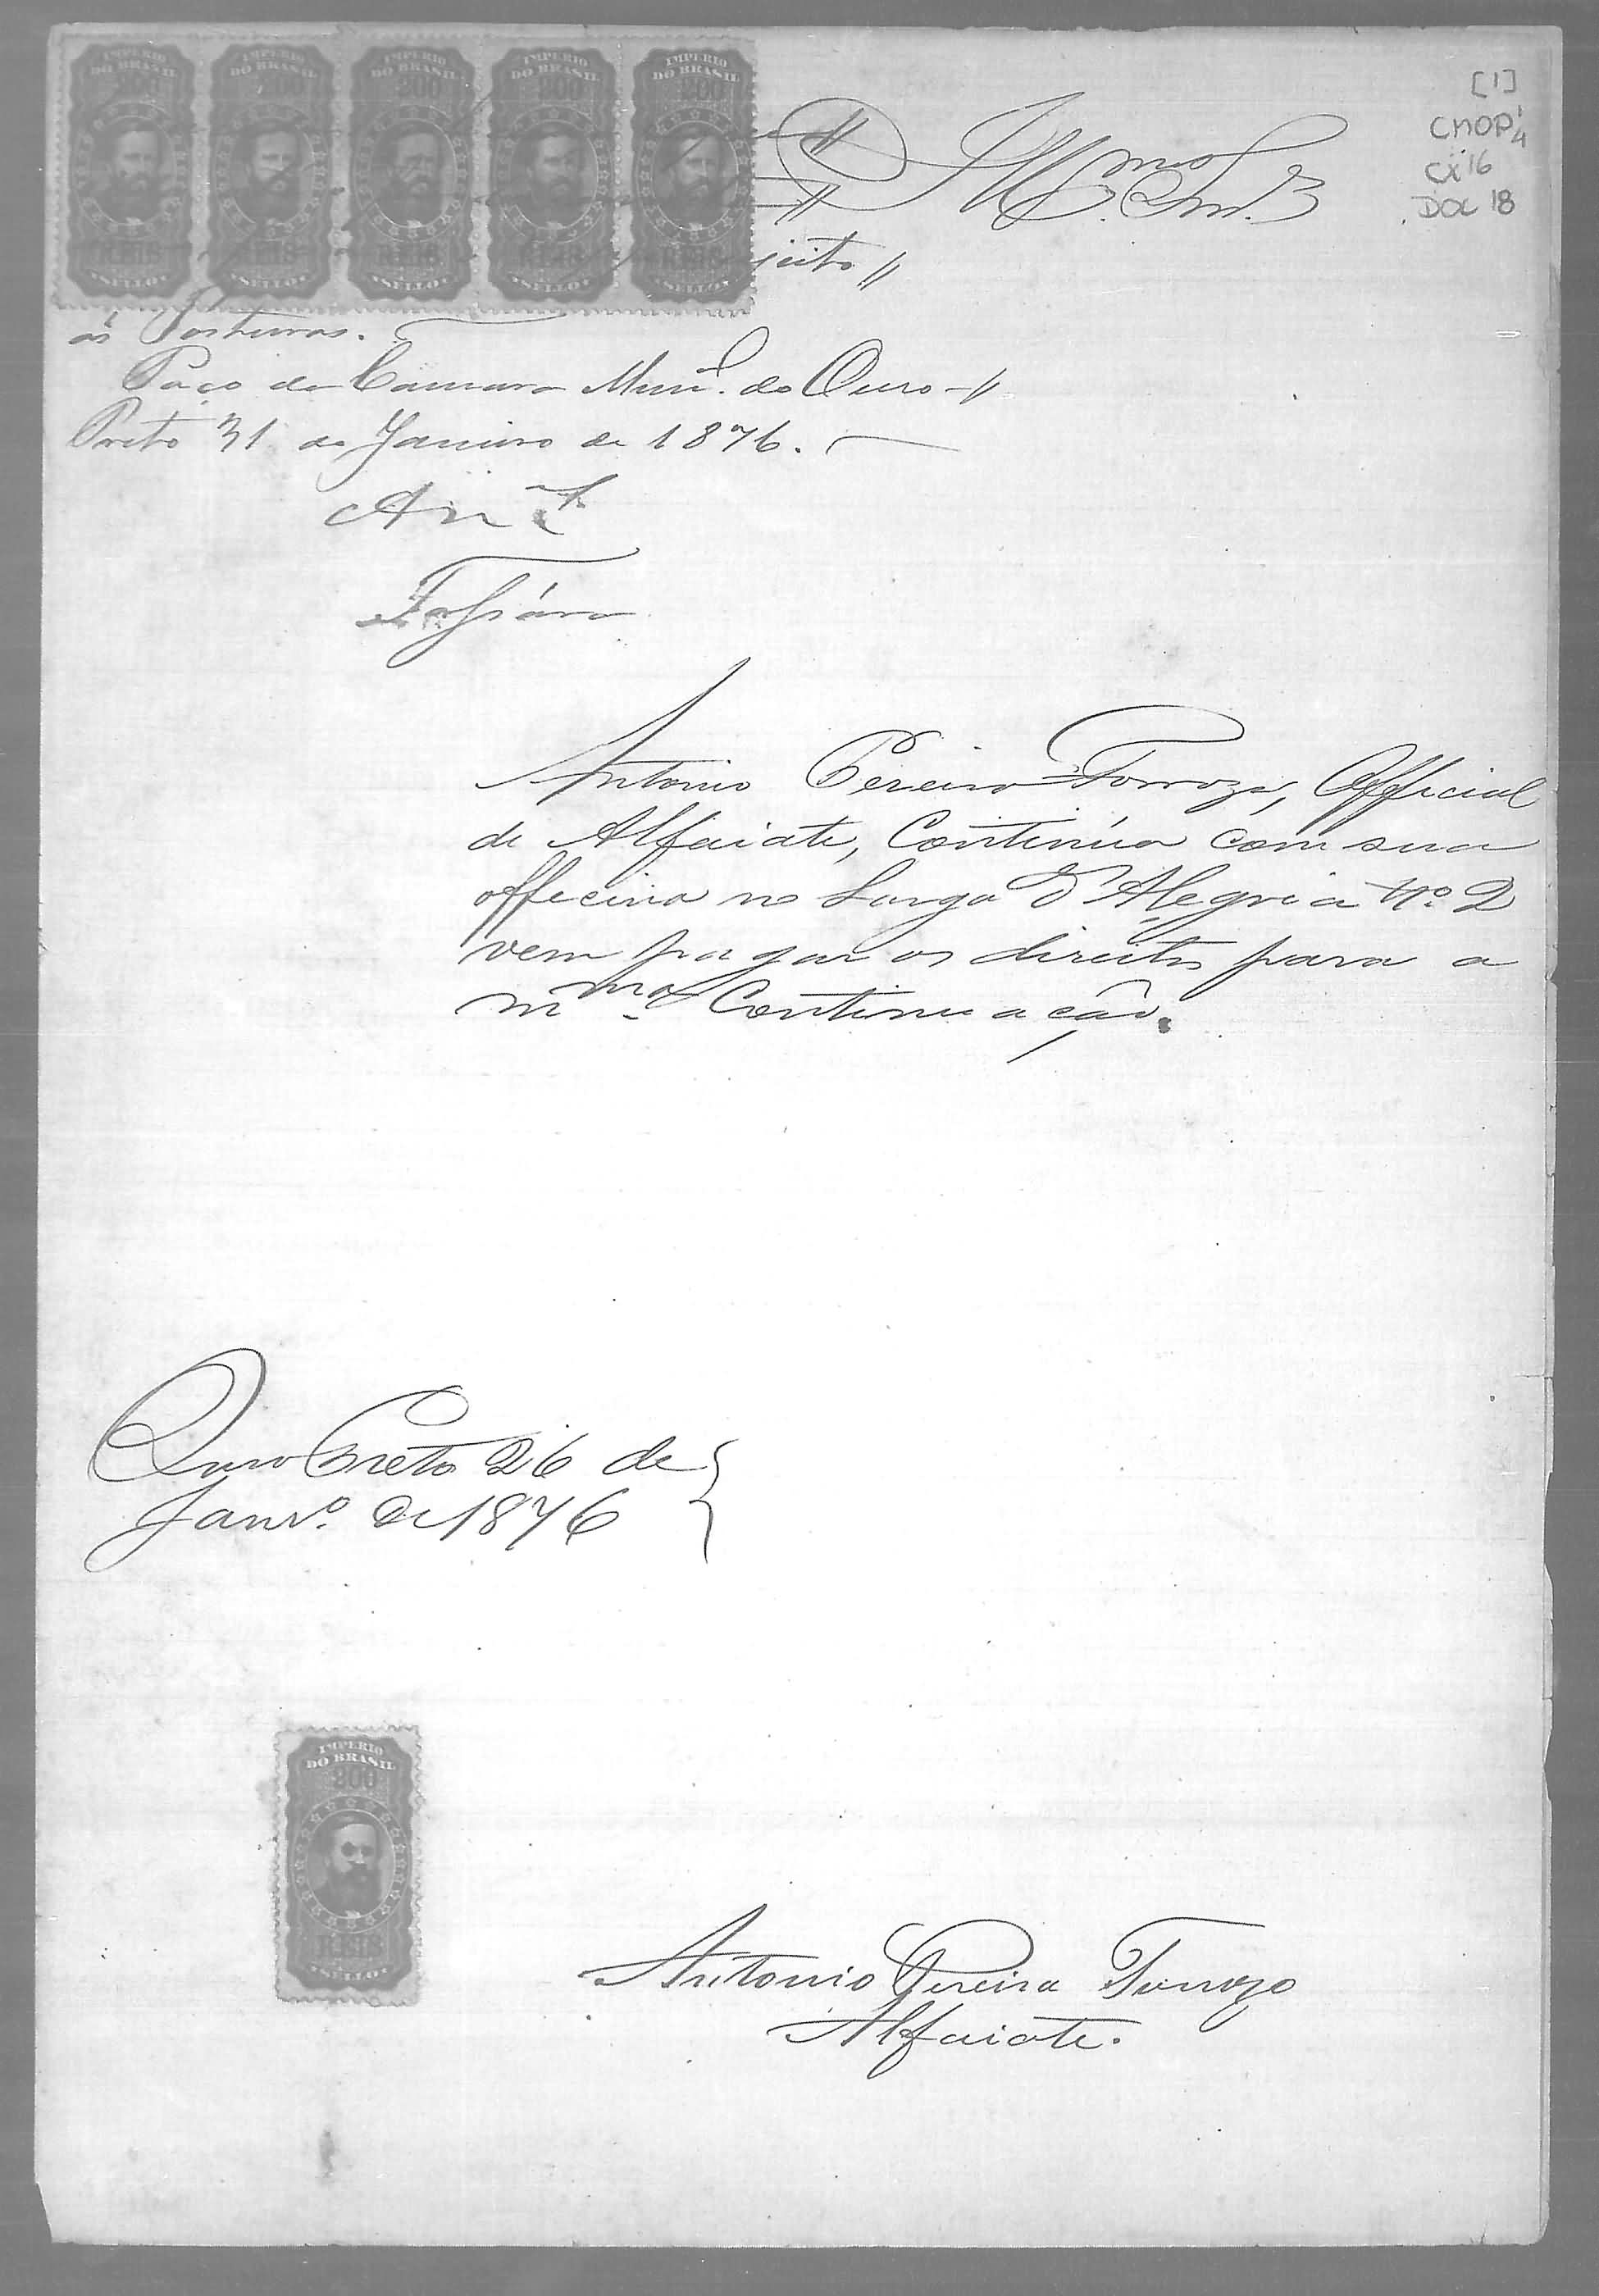 IMPERIO DO BRASIL 200 REIS SELLO
IMPERIO DO BRASIL 200 REIS SELLO
IMPERIO DO BRASIL 200 REIS SELLO
IMPERIO DO BRASIL 200 REIS SELLO
IMPERIO DO BRASIL 200 REIS SELLO
[1]
CMOP
CX 16
DOC 18
Ill.mos Snr.es
jeito //
as Posturas.
Paço da Camara Mun.l do Ouro-//
Preto 31 de Janeiro de 1876.
Antonio Pereira Torroza, Official
de Alfaiate, Continúa com sua
officina no Largo d'Alegria Nº 2
vem pagar os direitos para a
m.ma Continuação.
Ouro Preto 26 de
Janr.o de 1876
IMPERIO
DO BRASIL
200
REIS
SELLO
Antonio Pereira
Alfaiate.